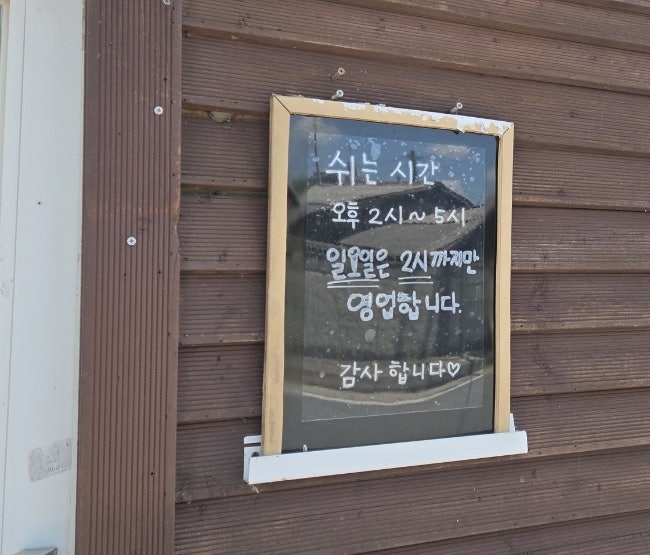 쉬는 시간
오후 2시~5시
일요일은 2시까지만
영업합니다.
감사합니다♡